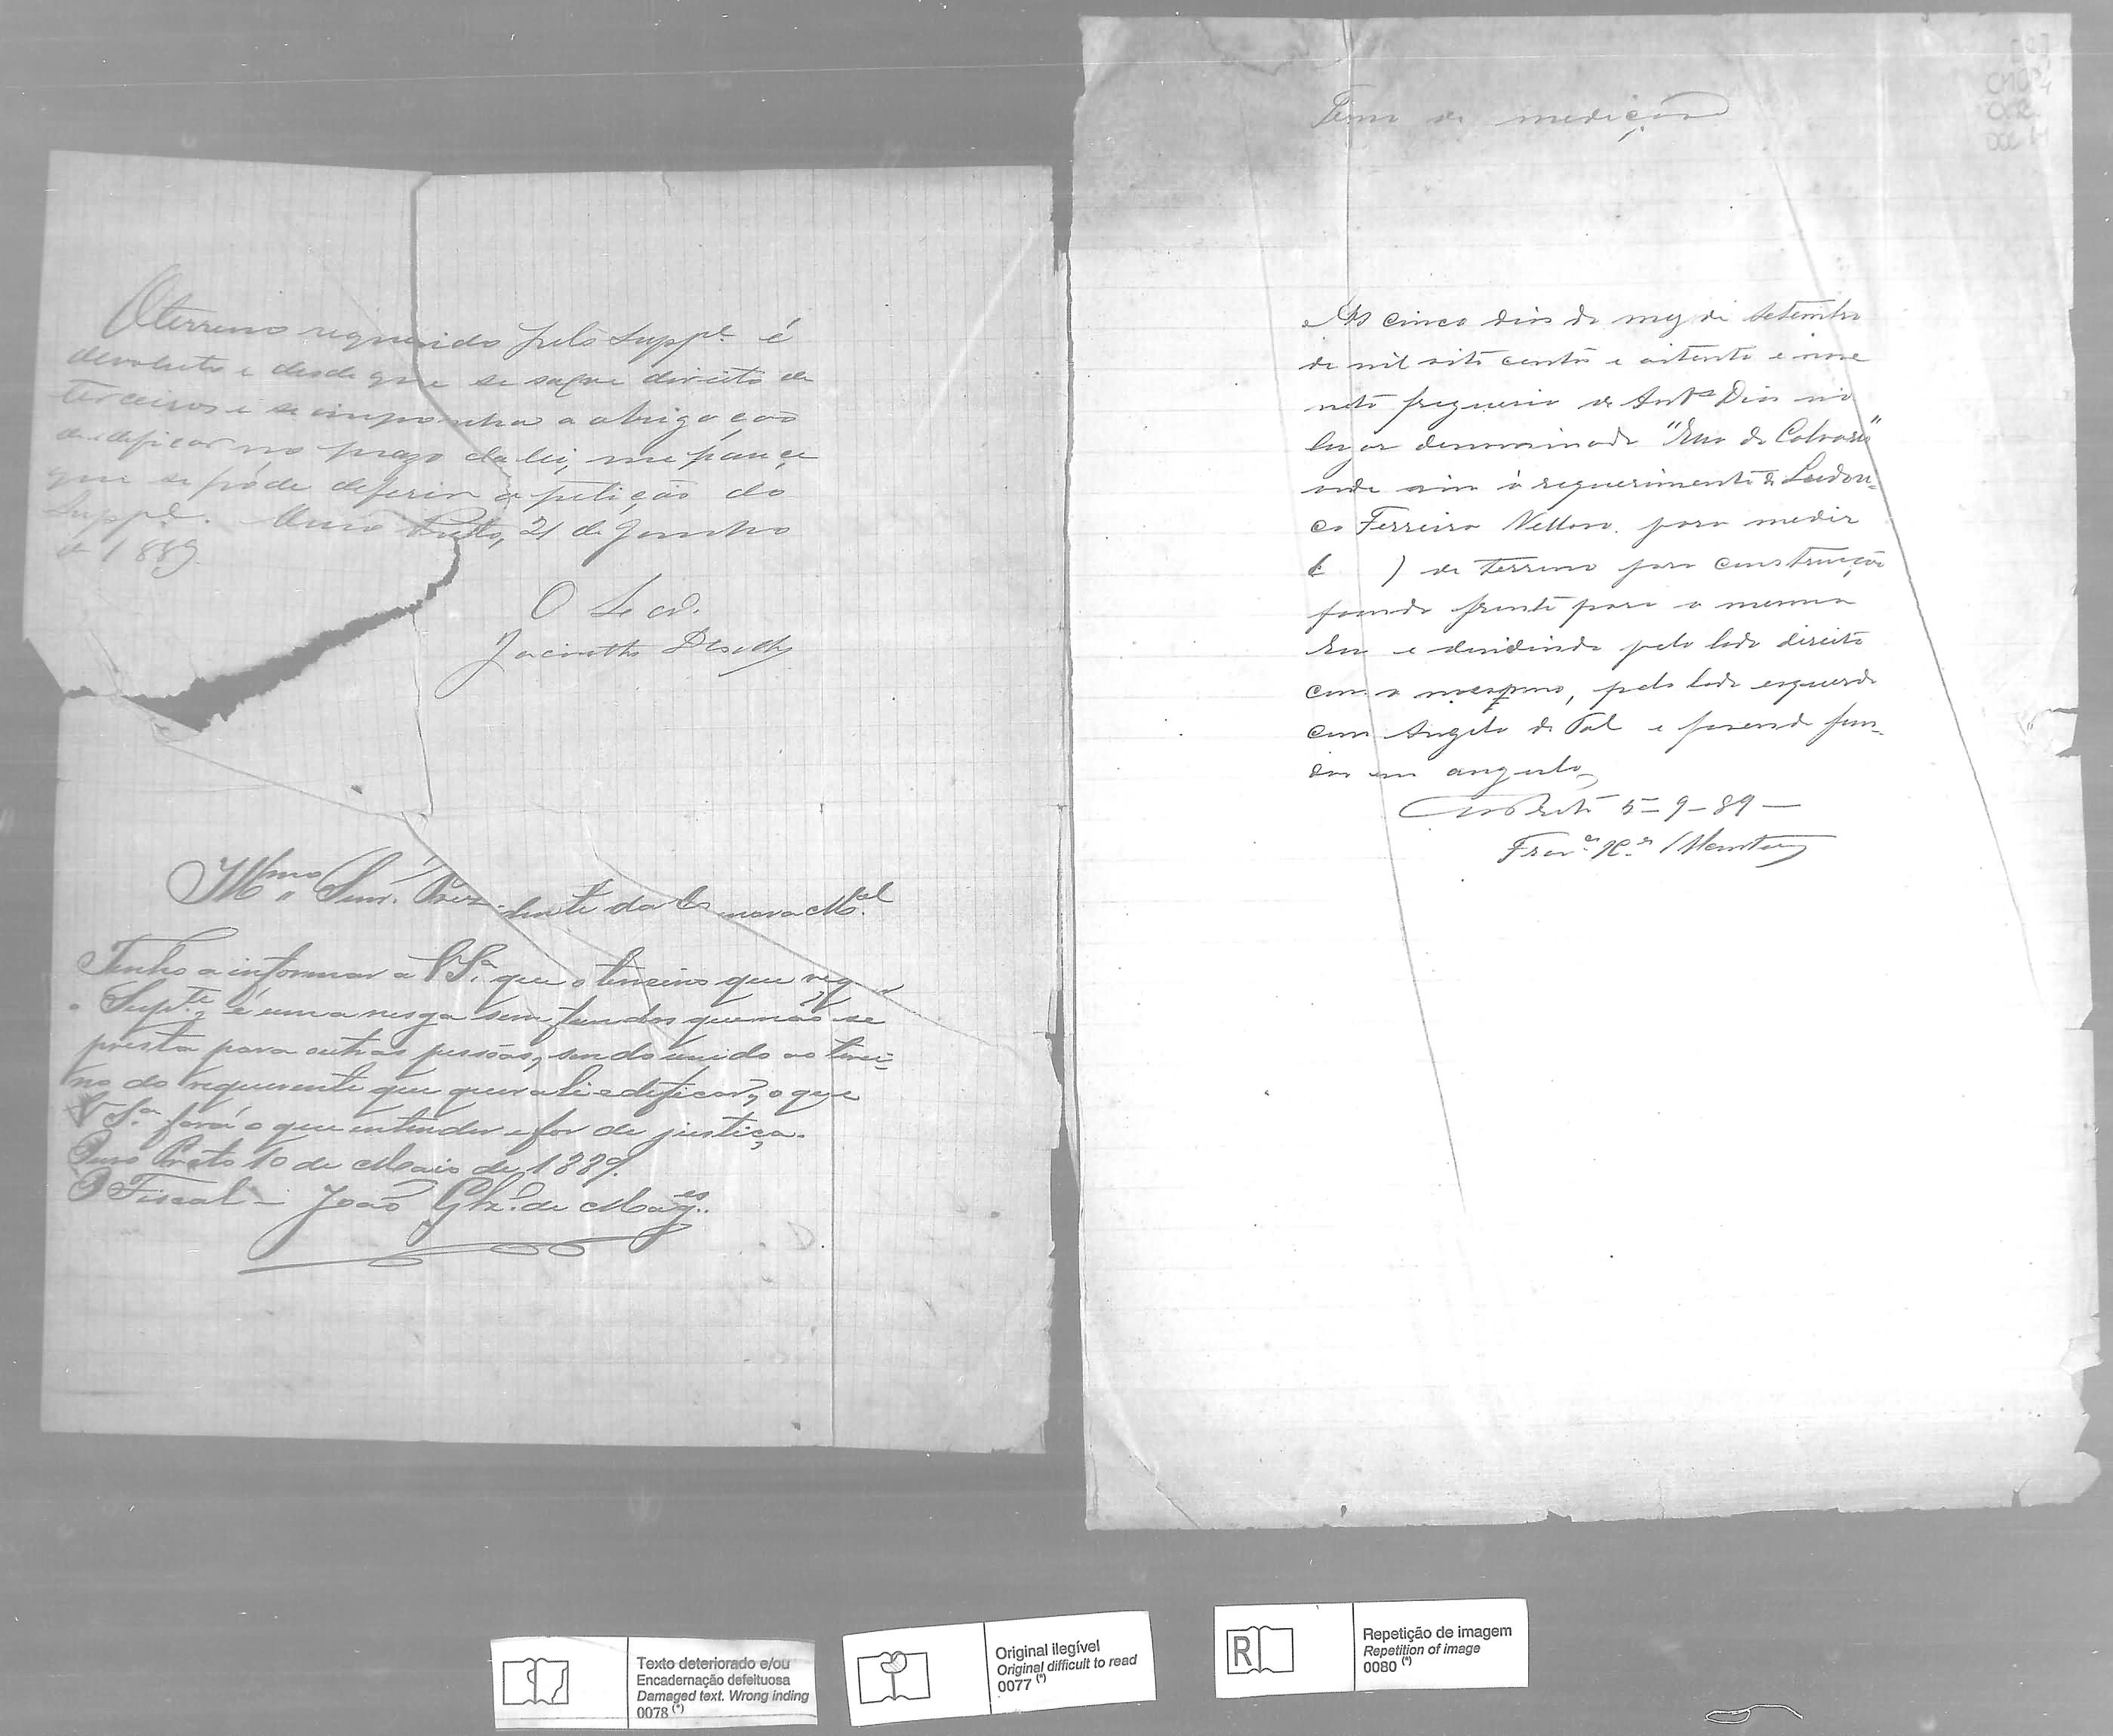 O terreno requerido pelo Suppe. é
devoluto e desde que se salve direito de
terceiros e se imponha a obrigação
de edificar no prazo da lei, me parece
que se póde deferir a petição do
Suppe. Ouro Preto, 21 de Junho
de 1889.
O
Jacintho
Illmo. Snr. Prezidente da Camara Mal.
Tenho a informar a VSa. que o terreno que req
o Supte., é uma nesga sem fundos que não se
presta para outras pessôas, sendo unido ao terre=
no do requerente que quer ali edificar, o que
VSa. fará o que entender e for de justiça.
Ouro Preto 10 de Maio de 1889.
O Fiscal - João Glz. de Mages.
Termo de medição
Aos cinco dias do mez de Setembro
de mil oito centos e oitenta e nove
nesta freguesia de Antº Dias no
lugar denominado "Rua do Calvario"
onde vim á requerimento de
Ferreira Velloso para medir
( ) de terreno para construcção
fazendo frente para a mesma
Rua e dividindo pelo lado direito
com o mesmo, pelo lado esquerdo
com Angelo de Tal e fazendo fun-
dos em angulo
Ouro Preto 5-9-89-
Texto deteriorado e/ou
Encadernação defeituosa
Damaged text. Wrong inding
0078 (*)
Original ilegível
Original difficult to read
0077 (*)
R
Repetição de imagem
Repetition of image
0080 (*)